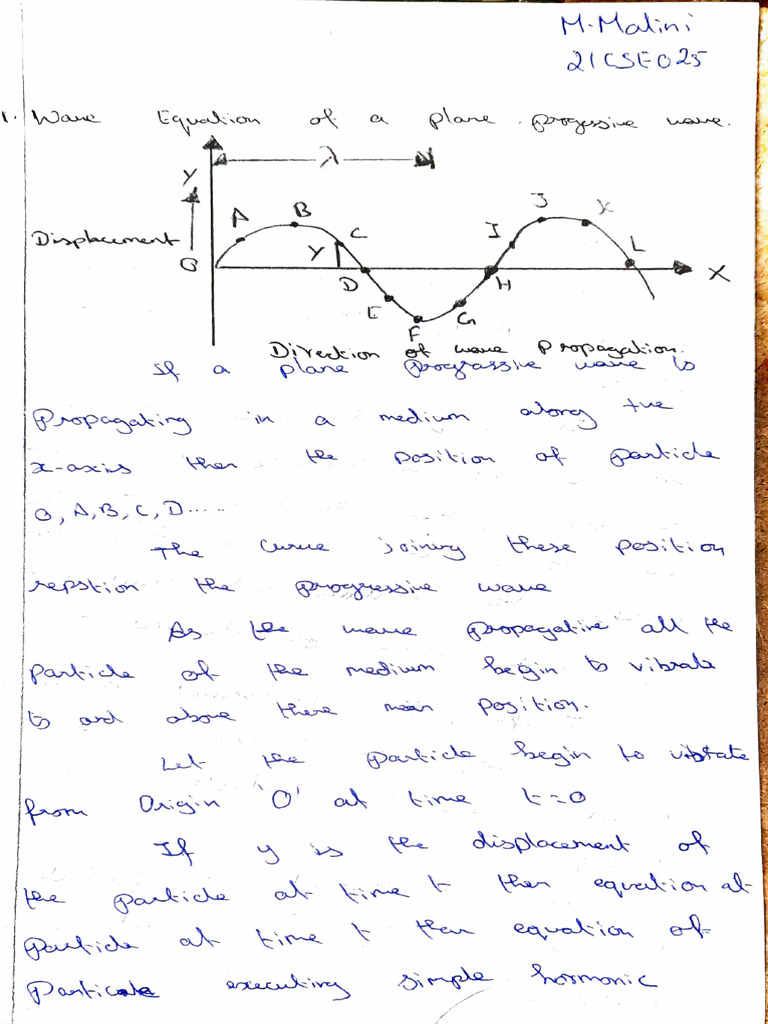 M.Malini
21CSE025
1. Wave Equation of a plane progessive wave.
λ
Y
A B C Y I J K L
Displacement O D E F G H X
Direction of wave Propagation.
If a plane progressive wave is
Propagating in a medium along +ve
x-axis then the position of particle
O, A, B, C, D.....
The curve joining these position
repstion the progressive wave
As the wave propagative all the
Particle of the medium begin to vibrate
to and above there mean position.
Let the particle begin to vibrate
from Origin 'O' at time t=0
If y is the displacement of
the particle at time t then equation at
particle at time t then equation of
Particle executing simple hormonic